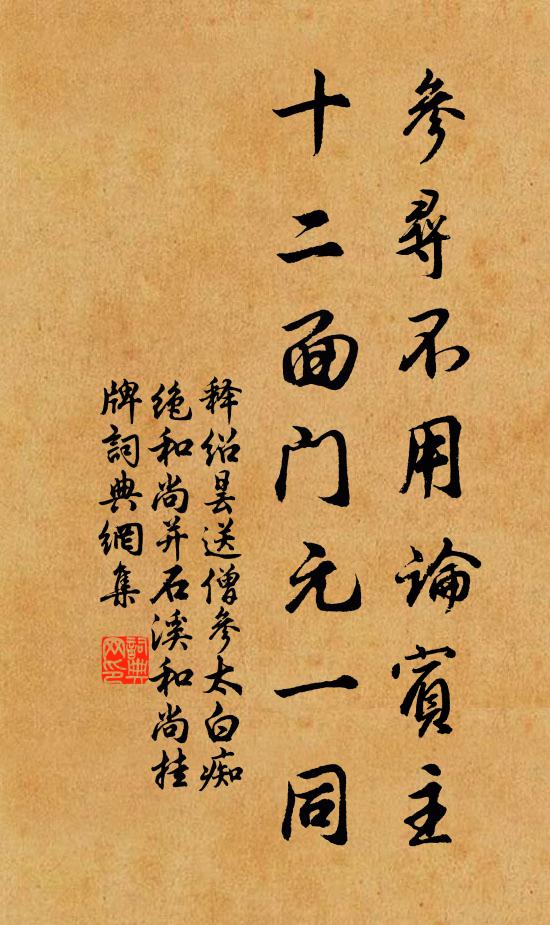 參尋不用論賓主
十二面門元一同
释绍昙送僧參太白痴
绝和尚并石溪和尚挂
牌詞典網集
詞典网印